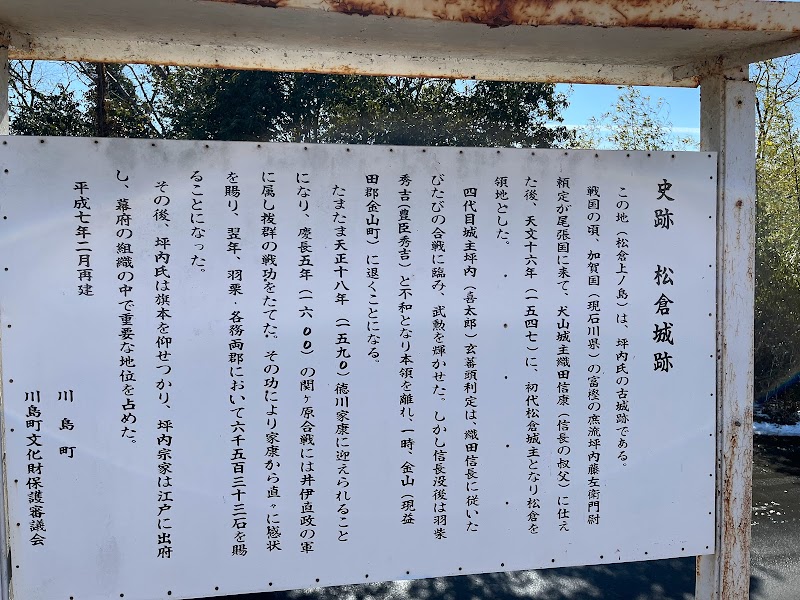 史跡　松倉城跡
この地（松倉上ノ島）は、坪内氏の古城跡である。
戦国の頃、加賀国（現石川県）の富樫の庶流坪内藤左衛門尉
頼定が尾張国に来て、犬山城主織田信康（信長の叔父）に仕え
た後、天文十六年（一五四七）に、初代松倉城主となり松倉を
領地とした。
四代目城主坪内（喜太郎）玄蕃頭利定は、織田信長に従いた
びたびの合戦に臨み、武勲を輝かせた。しかし信長没後は羽柴
秀吉（豊臣秀吉）と不和となり本領を離れ、一時、金山（現益
田郡金山町）に退くことになる。
たまたま天正十八年（一五九〇）徳川家康に迎えられること
になり、慶長五年（一六〇〇）の関ヶ原合戦には井伊直政の軍
に属し抜群の戦功をたてた。その功により家康から直々に感状
を賜り、翌年、羽栗・各務両郡において六千五百三十三石を賜
ることになった。
その後、坪内氏は旗本を仰せつかり、坪内宗家は江戸に出府
し、幕府の組織の中で重要な地位を占めた。
平成七年二月再建
川島町
川島町文化財保護審議会